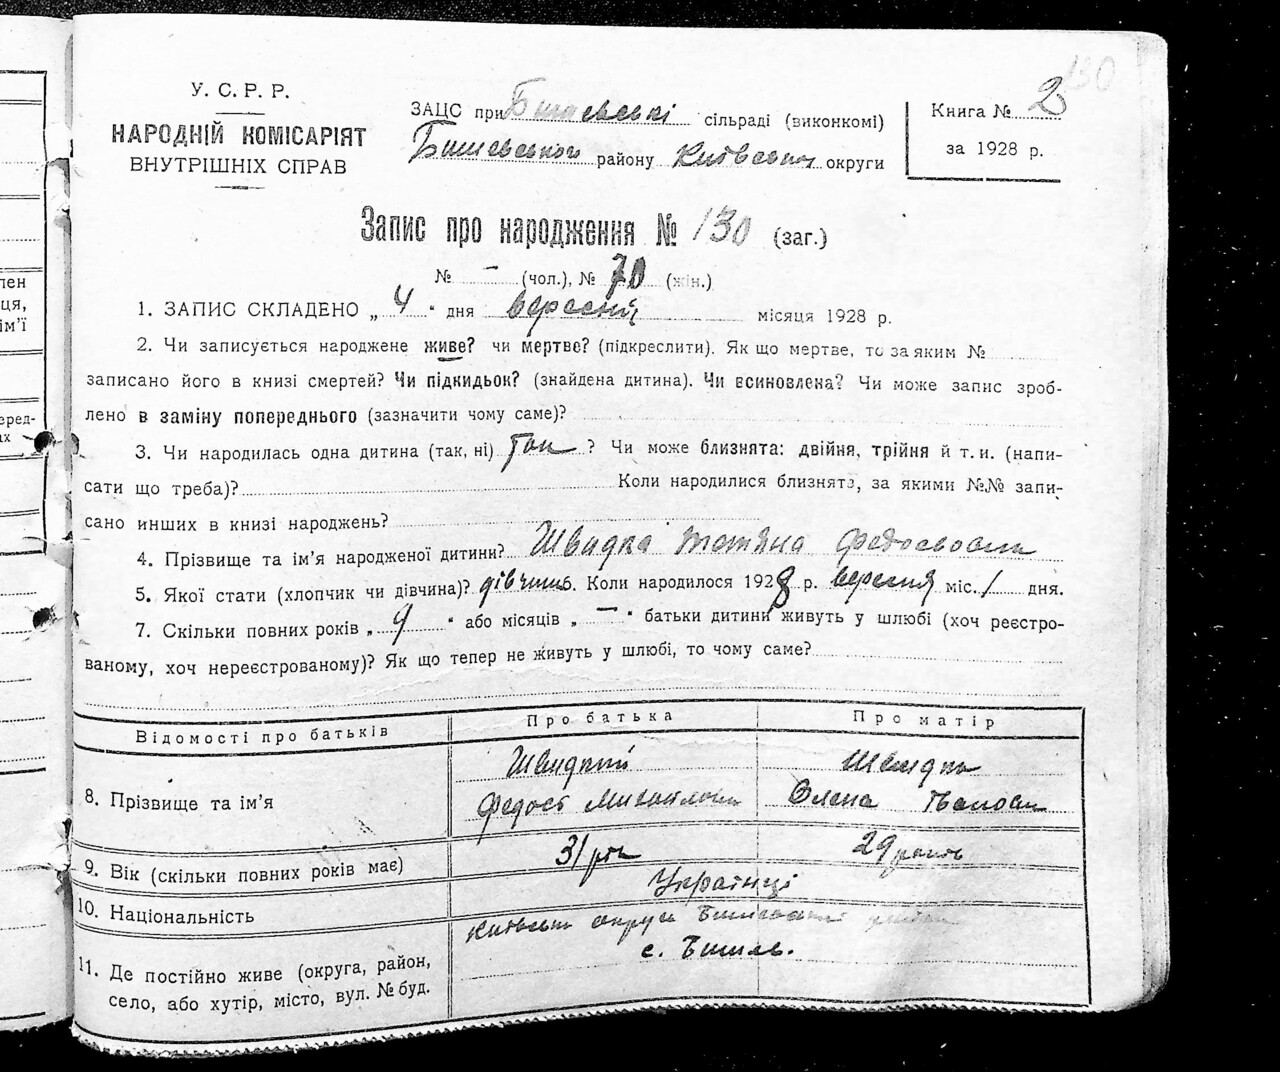 130
У. С. Р. Р.
НАРОДНІЙ КОМІСАРІЯТ
ВНУТРІШНІХ СПРАВ
ЗАЦС при Бишевській сільраді (виконкомі)
Бишевського району Київської округи
Книга № 2
за 1928 р.
Запис про народження № 130 (заг.)
№ – (чол.), № 70 (жін.)
1. ЗАПИС СКЛАДЕНО „ 4 " дня вересня місяця 1928 р.
2. Чи записується народжене живе? чи мертве? (підкреслити). Як що мертве, то за яким №
записано його в книзі смертей? Чи підкидьок? (знайдена дитина). Чи всиновлена? Чи може запис зроб-
лено в заміну попереднього (зазначити чому саме)?
3. Чи народилась одна дитина (так, ні) так ? Чи може близнята: двійня, трійня й т. и. (напи-
сати що треба)? Коли народилися близнята, за якими №№ запи-
сано инших в книзі народжень?
4. Прізвище та ім'я народженої дитини? Швидка Тетяна Федосовна
5. Якої стати (хлопчик чи дівчина)? дівчина 6. Коли народилося 1928 р. вересня міс. 1 дня.
7. Скільки повних років „ 9 " або місяців „ – " батьки дитини живуть у шлюбі (хоч реєстро-
ваному, хоч нереєстрованому)? Як що тепер не живуть у шлюбі, то чому саме?
Відомості про батьків
Про батька
Про матір
8. Прізвище та ім'я
Швидкий
Федос Михайлович
Швидка
Олена
9. Вік (скільки повних років має)
31 рік
29 років
10. Національність
Українці
11. Де постійно живе (округа, район,
село, або хутір, місто, вул. № буд.
Київська округа Бишівський район
с. Бишів.
пен
ця,
ім'ї
еред-
ах